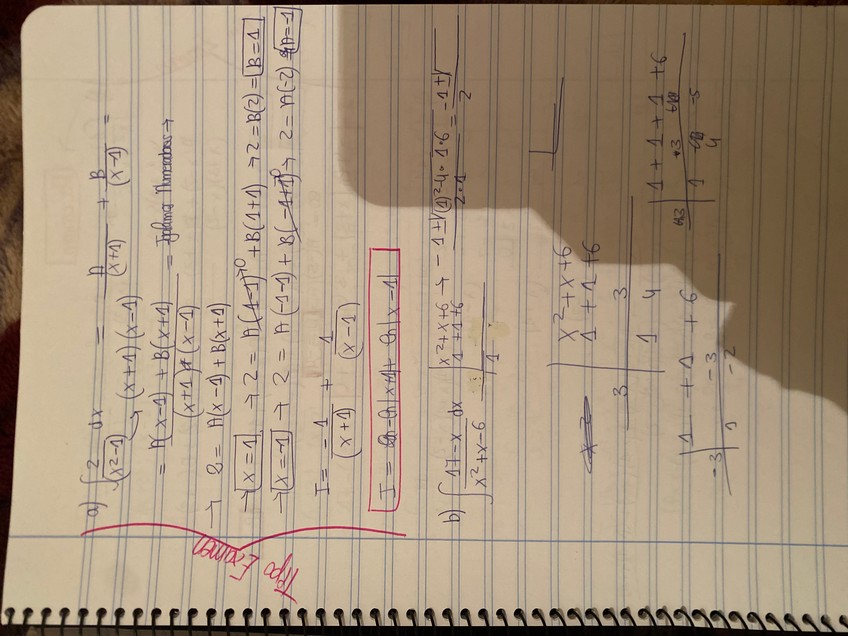 Tipo Examen
a) ∫ 2/(x²-1) dx = A/(x+1) + B/(x-1) =
→ (x+1)(x-1)
= A(x-1) + B(x+1) / (x+1)*(x-1) = Igualamos Numeradores →
→ 2 = A(x-1) + B(x+1)
→ x=1 → 2 = A(1-1)→0 + B(1+1) → 2 = B(2) = B=1
→ x=-1 → 2 = A(-1-1) + B(-1+1)→0 → 2 = A(-2) A=-1
I = -1/(x+1) + 1/(x-1)
I = -ln|x+1| + ln|x-1|
b) ∫ 17-x/x²+x-6 dx x²+x+6 → -1±√(1)²-4·1·6 / 2·1 = -1±√ / 2
1+1+6
1
x²+x+6
1+1+6
3 3
1 4
1 +1 +6
-3 -3
1 -2
1+1+1+6
+3
1 4 -5